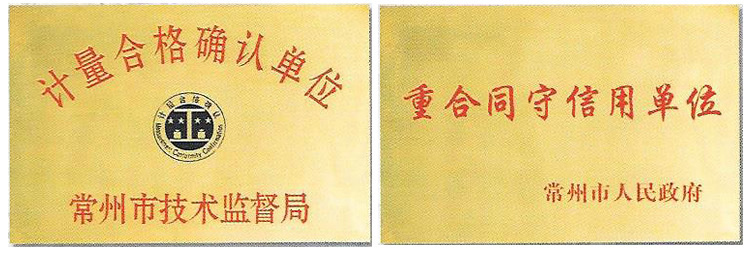 计量合格确认单位
计量合格确认
Measurement Conformity Confirmation
常州市技术监督局
重合同守信用单位
常州市人民政府